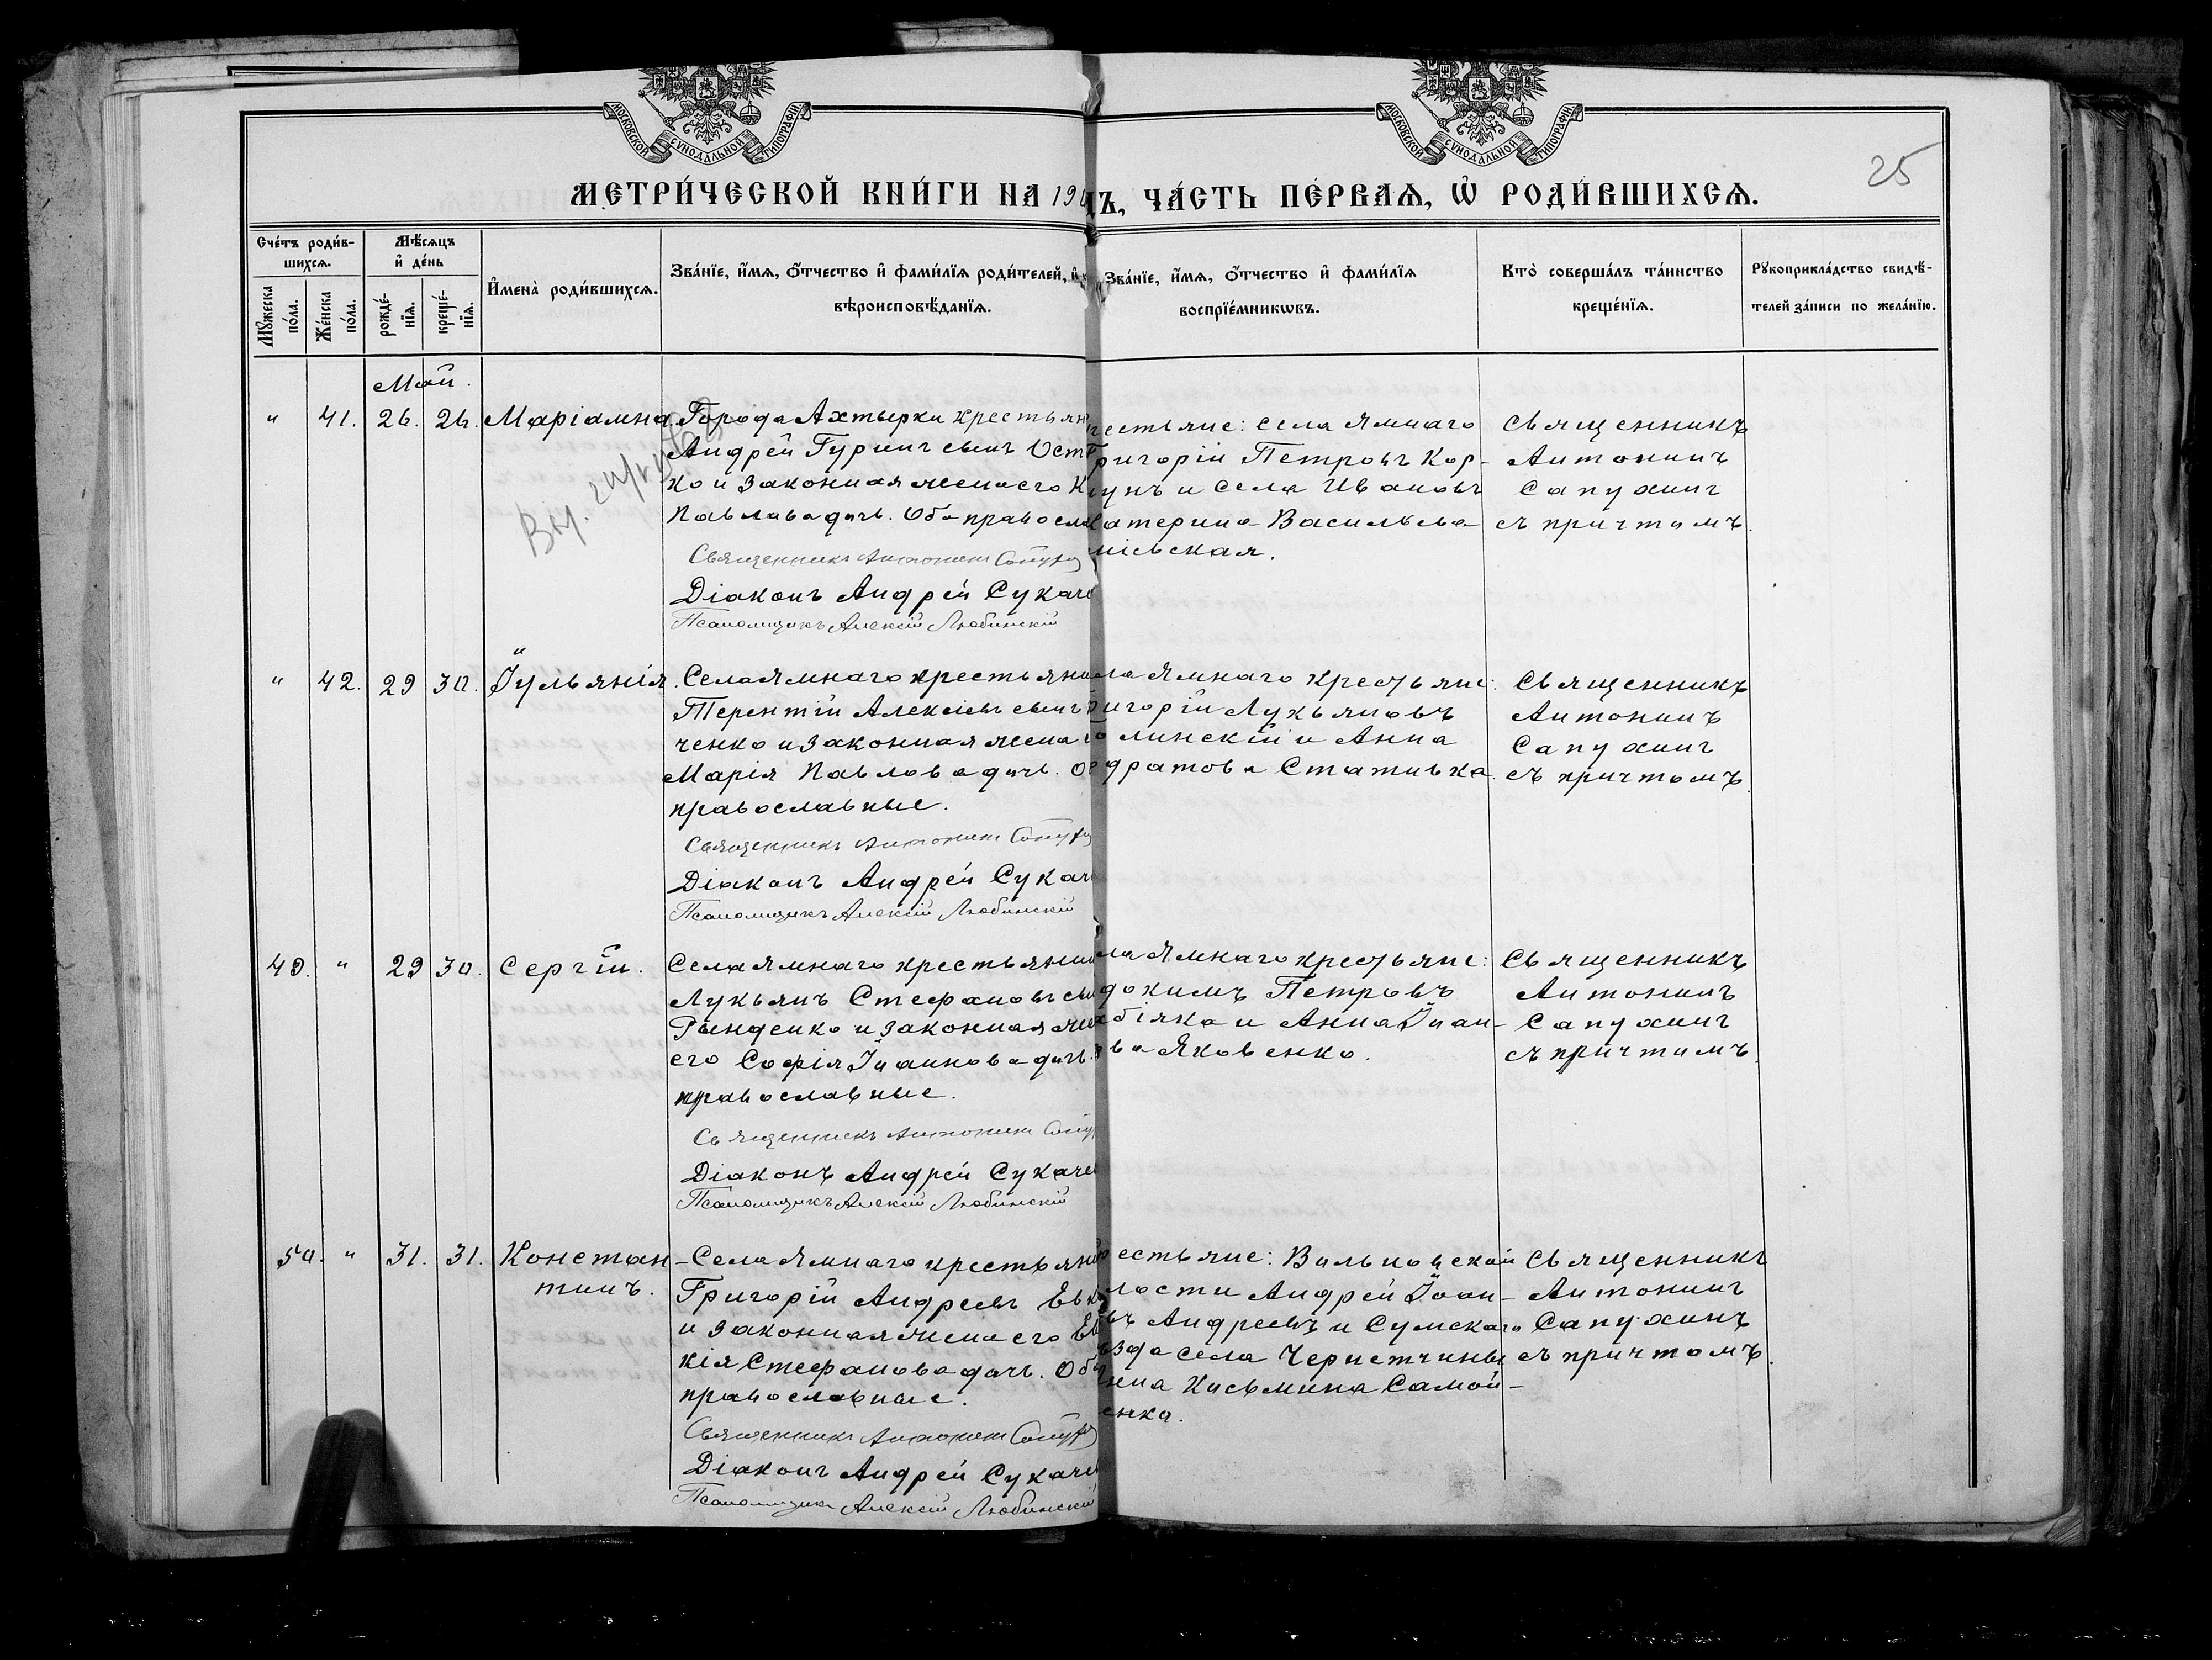 МОСКОВСКОЙ СѴНОДАЛЬНОЙ ТИПОГРАФІИ
МОСКОВСКОЙ СѴНОДАЛЬНОЙ ТИПОГРАФІИ
25
МЕТРИ́ЧЕСКОЙ КНИ́ГИ НА 190
Ъ, ЧА́СТЬ ПЕ́РВАѦ, Ѡ҆ РОДИ́ВШИХСѦ.
Сче́тъ роди́в-
шихсѧ.
Мѣ́сѧцъ
и҆ де́нь
Мꙋ́жеска
по́ла.
Же́нска
по́ла.
рожде́-
нїѧ.
креще́-
нїѧ.
И҆мена̀ роди́вшихсѧ.
Зва́нїе, и҆́мѧ, ѻ҆́тчество и҆ фами́лїѧ роди́телей, и҆
вѣроисповѣ́данїѧ.
Зва́нїе, и҆́мѧ, ѻ҆́тчество и҆ фами́лїѧ
воспрїе́мникѡвъ.
Кто̀ соверша́лъ та́инство
креще́нїѧ.
Рꙋкоприкла́дство свидѣ́-
телей за́писи по жела́нїю.
Май.
" 41. 26. 26. Маріамна.
Города Ахтырки крестьян
Андрей Гуринъ сынъ Ост
ко и законная жена его К
Павлова дочь. Оба правосла
Священникъ Антонинъ Сапух
Діаконъ Андрей Сукаче
Псаломщикъ Алексій Любинскій
Вы.
рестьяне: села Ямнаго
ригорій Петровъ Кор-
унъ и села Ивановъ
атерина Васильева
нісьская.
Священникъ
Антонинъ
Сапухинъ
съ причтомъ.
" 42. 29 30. Іульянія.
Села Ямнаго крестьяни
Терентій Алексіевъ сынъ
ченко и законная жена е
Марія Павлова дочь. Об
православные.
Священникъ Антонинъ Сапух
Діаконъ Андрей Сукаче
Псаломщикъ Алексій Любинскій
ла Ямнаго крестьяне:
ригорій Лукьяновъ
линскій и Анна
дратова Стативка.
Священникъ
Антонинъ
Сапухинъ
съ причтомъ.
49. " 29 30. Сергій.
Села Ямнаго крестьянин
Лукьянъ Стефановъ сын
Рынденко и законная жен
его Софія Іоаннова дочь.
православные.
Священникъ Антонинъ Сапу
Діаконъ Андрей Сукаче
Псаломщикъ Алексій Любинскій
ла Ямнаго крестьяне:
докимъ Петровъ
біяка и Анна Іоан-
ва Яковенко.
Священникъ
Антонинъ
Сапухинъ
съ причтомъ.
50. " 31. 31. Констан-
тинъ.
Села Ямнаго крестьяни
Григорій Андреевъ Евк
и законная жена его Ев
кія Стефанова дочь. Оба
православные.
Священникъ Антонинъ Сапух
Діаконъ Андрей Сукаче
Псаломщикъ Алексій Любинскій
рестьяне: Вольновской
лости Андрей Іоан-
въ Андреевъ и Сумскаго
ѣзда села Чернетчины
нна Кисьмина Самой-
енка.
Священникъ
Антонинъ
Сапухинъ
съ причтомъ.